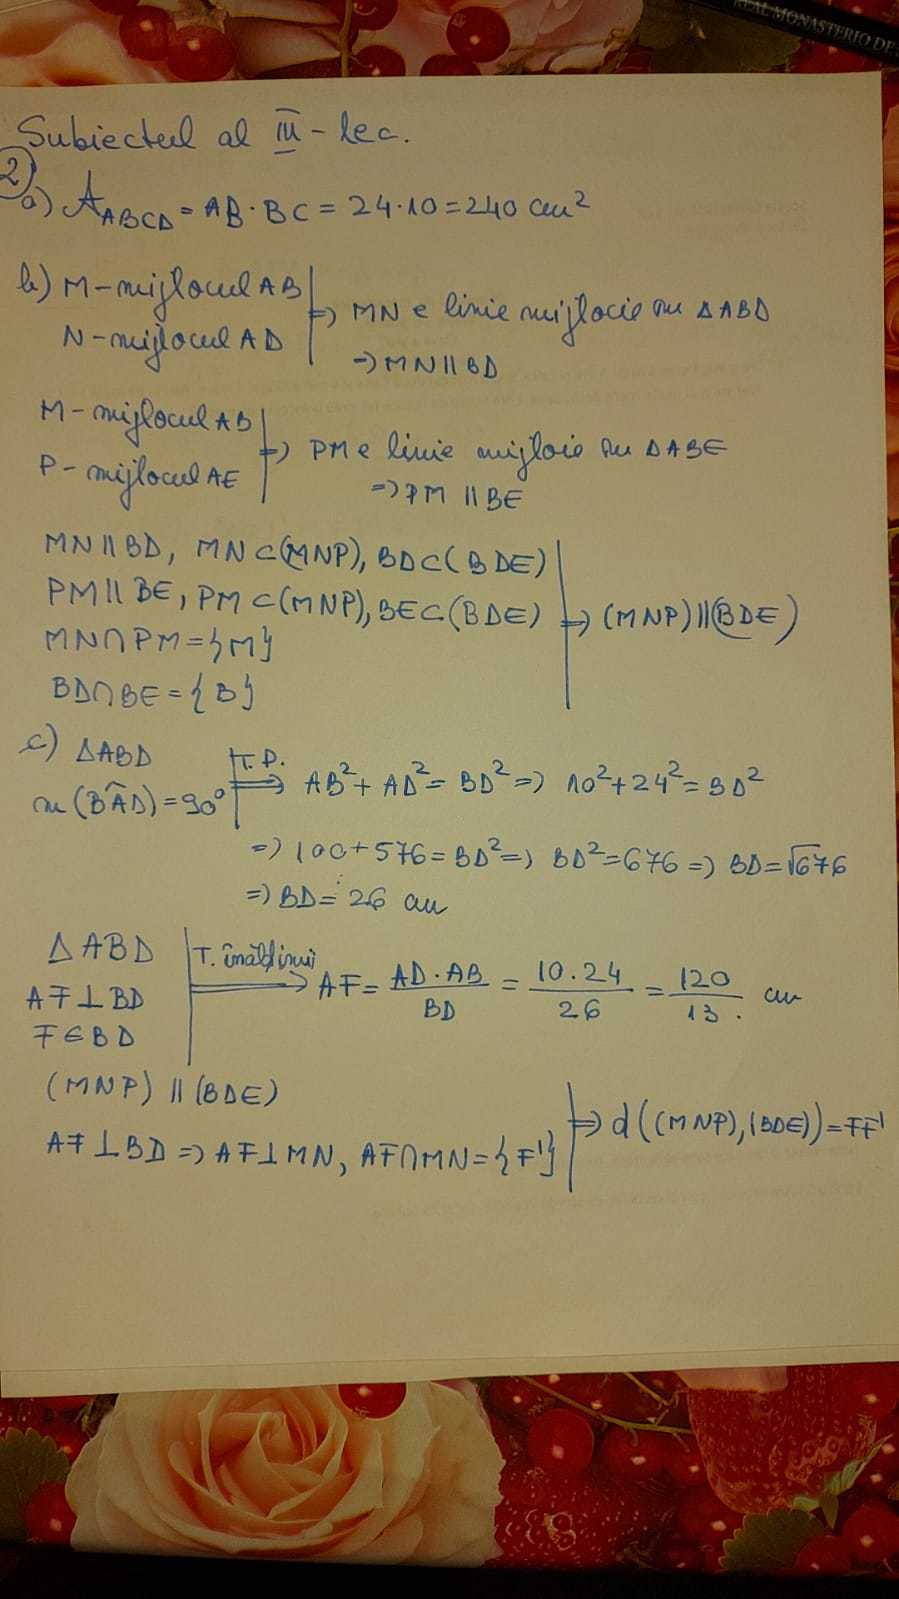 REAL MONASTERIO DE
Subiectul al III-lea.
2
a) A ABCD = AB·BC = 24·10 = 240 cm²
b) M-mijlocul AB
N-mijlocul AD
⇒ MN e linie mijlocie în ΔABD
⇒ MN ∥ BD
M-mijlocul AB
P-mijlocul AE
⇒ PM e linie mijlocie în ΔABE
⇒ PM ∥ BE
MN ∥ BD, MN ⊂ (MNP), BD ⊂ (BDE)
PM ∥ BE, PM ⊂ (MNP), BE ⊂ (BDE)
MN ∩ PM = {M}
BD ∩ BE = {B}
⇒ (MNP) ∥ (BDE)
c) ΔABD
m(BÂD) = 90°
T.P. ⇒ AB² + AD² = BD² ⇒ 10² + 24² = BD²
⇒ 100 + 576 = BD² ⇒ BD² = 676 ⇒ BD = √676
⇒ BD = 26 cm
ΔABD
AF ⊥ BD
F ∈ BD
T. înălțimii ⇒ AF = AD·AB / BD = 10·24 / 26 = 120 / 13 cm
(MNP) ∥ (BDE)
AF ⊥ BD ⇒ AF ⊥ MN, AF ∩ MN = {F'}
⇒ d((MNP),(BDE)) = FF'